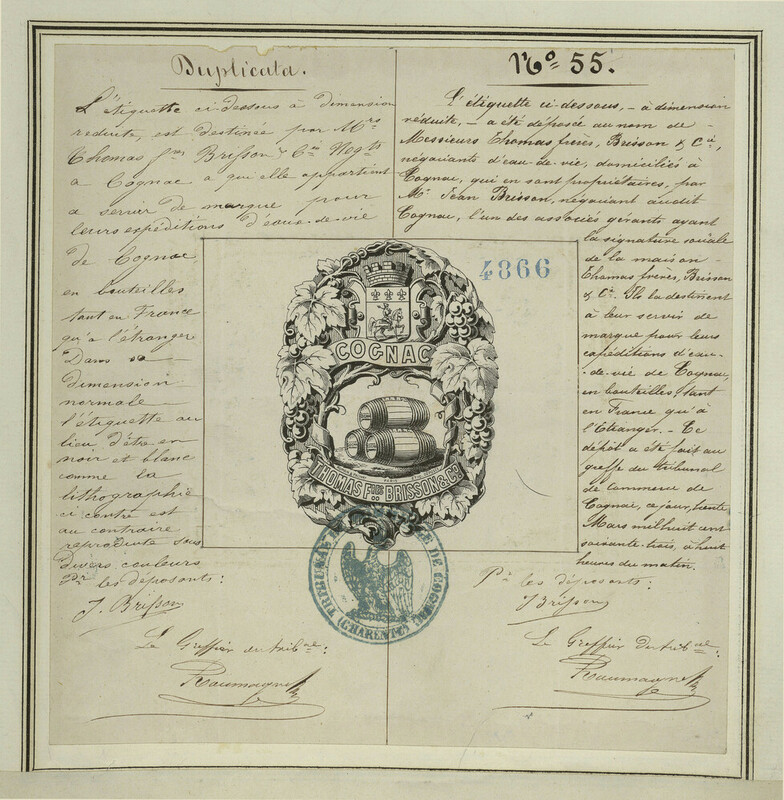 Duplicata.
L'étiquette ci-dessous à dimension
réduite, est destinée par Mrs
Thomas fres Brisson & Cie Negts
a Cognac a qui elle appartient
a servir de marque pour
leurs expéditions d'eaux-de-vie
de Cognac
en bouteilles
tant en France
qu'à l'étranger
Dans sa
dimension
normale
l'étiquette au
lieu d'être en
noir et blanc
comme la
lithographie
ci contre est
au contraire
reproduite sous
divers couleurs
Pr les déposants:
J. Brisson
Le Greffier du tribnal:
No 55.
L'étiquette ci-dessous, - à dimension
réduite, - a été déposée au nom de -
Messieurs Thomas frères, Brisson & Cie,
négociants d'eau-de-vie, domiciliés à
Cognac, qui en sont propriétaires, par
Mr Jean Brisson, négociant audit
Cognac, l'un des associés gérants ayant
la signature sociale
de la maison -
Thomas frères, Brisson
& Cie. Ils la destinent
à leur servir de
marque pour leurs
expéditions d'eau-
de-vie de Cognac,
en bouteilles, tant
en France qu'à
l'Etranger. - Ce
dépôt a été fait au
greffe du Tribunal
de Commerce de
Cognac, ce jour, trente
Mars mil huit cent
soixante-trois, à huit
heures du matin.
Pr les déposants:
J Brisson
Le Greffier du tribnal:
4866
COGNAC
THOMAS Fres BRISSON & Co
TRIBUNAL DE COGNAC
(CHARENTE)